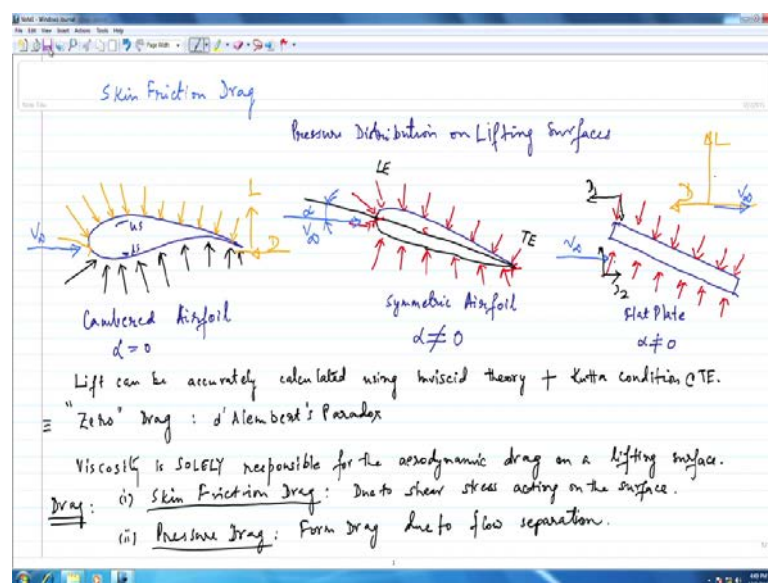 Note1 - Windows Journal
File Edit View Insert Actions Tools Help
Page Width
Skin Friction Drag
Note Title
Pressure Distribution on Lifting Surfaces
LE
L
L
D
V∞
α
V∞
V∞
US
LS
D
TE
V∞
D1
D2
Cambered Airfoil
α = 0
Symmetric Airfoil
α ≠ 0
Flat Plate
α ≠ 0
Lift can be accurately calculated using inviscid theory + Kutta condition @ TE.
≡ "Zero" Drag : d'Alembert's Paradox
Viscosity is SOLELY responsible for the aerodynamic drag on a lifting surface.
Drag : (i) Skin Friction Drag : Due to shear stress acting on the surface.
(ii) Pressure Drag : Form Drag due to flow separation.